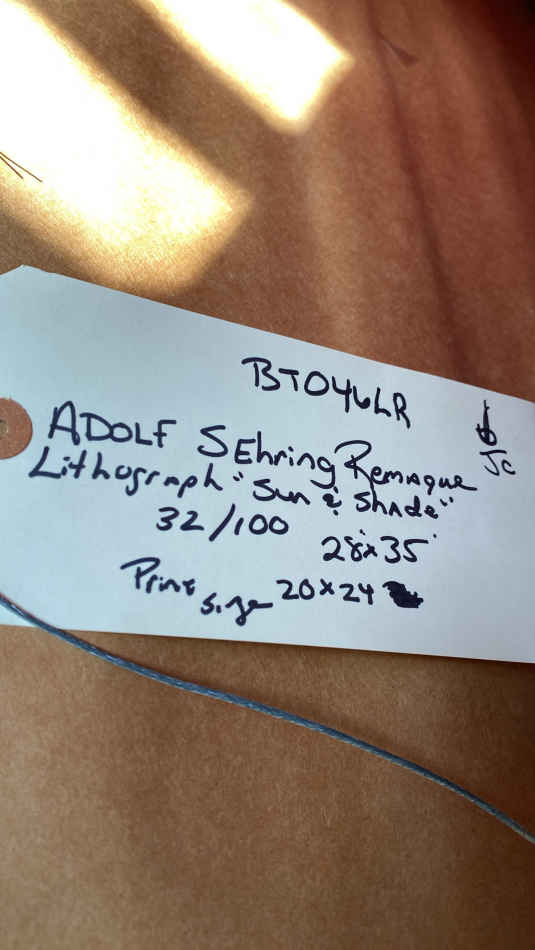 BT046LR
Jc
ADOLF SEhring Remaque
Lithograph "Sun & Shade"
32/100
28x35
Print size 20x24